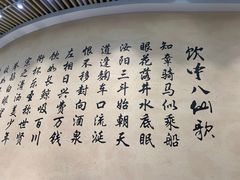 饮中八仙歌
知章骑马似乘船
眼花落井水底眠
汝阳三斗始朝天
道逢麹车口流涎
恨不移封向酒泉
左相日兴费万钱
饮如长鲸吸百川
衔杯乐圣称世贤
宗之潇洒美少年
举觞白眼望